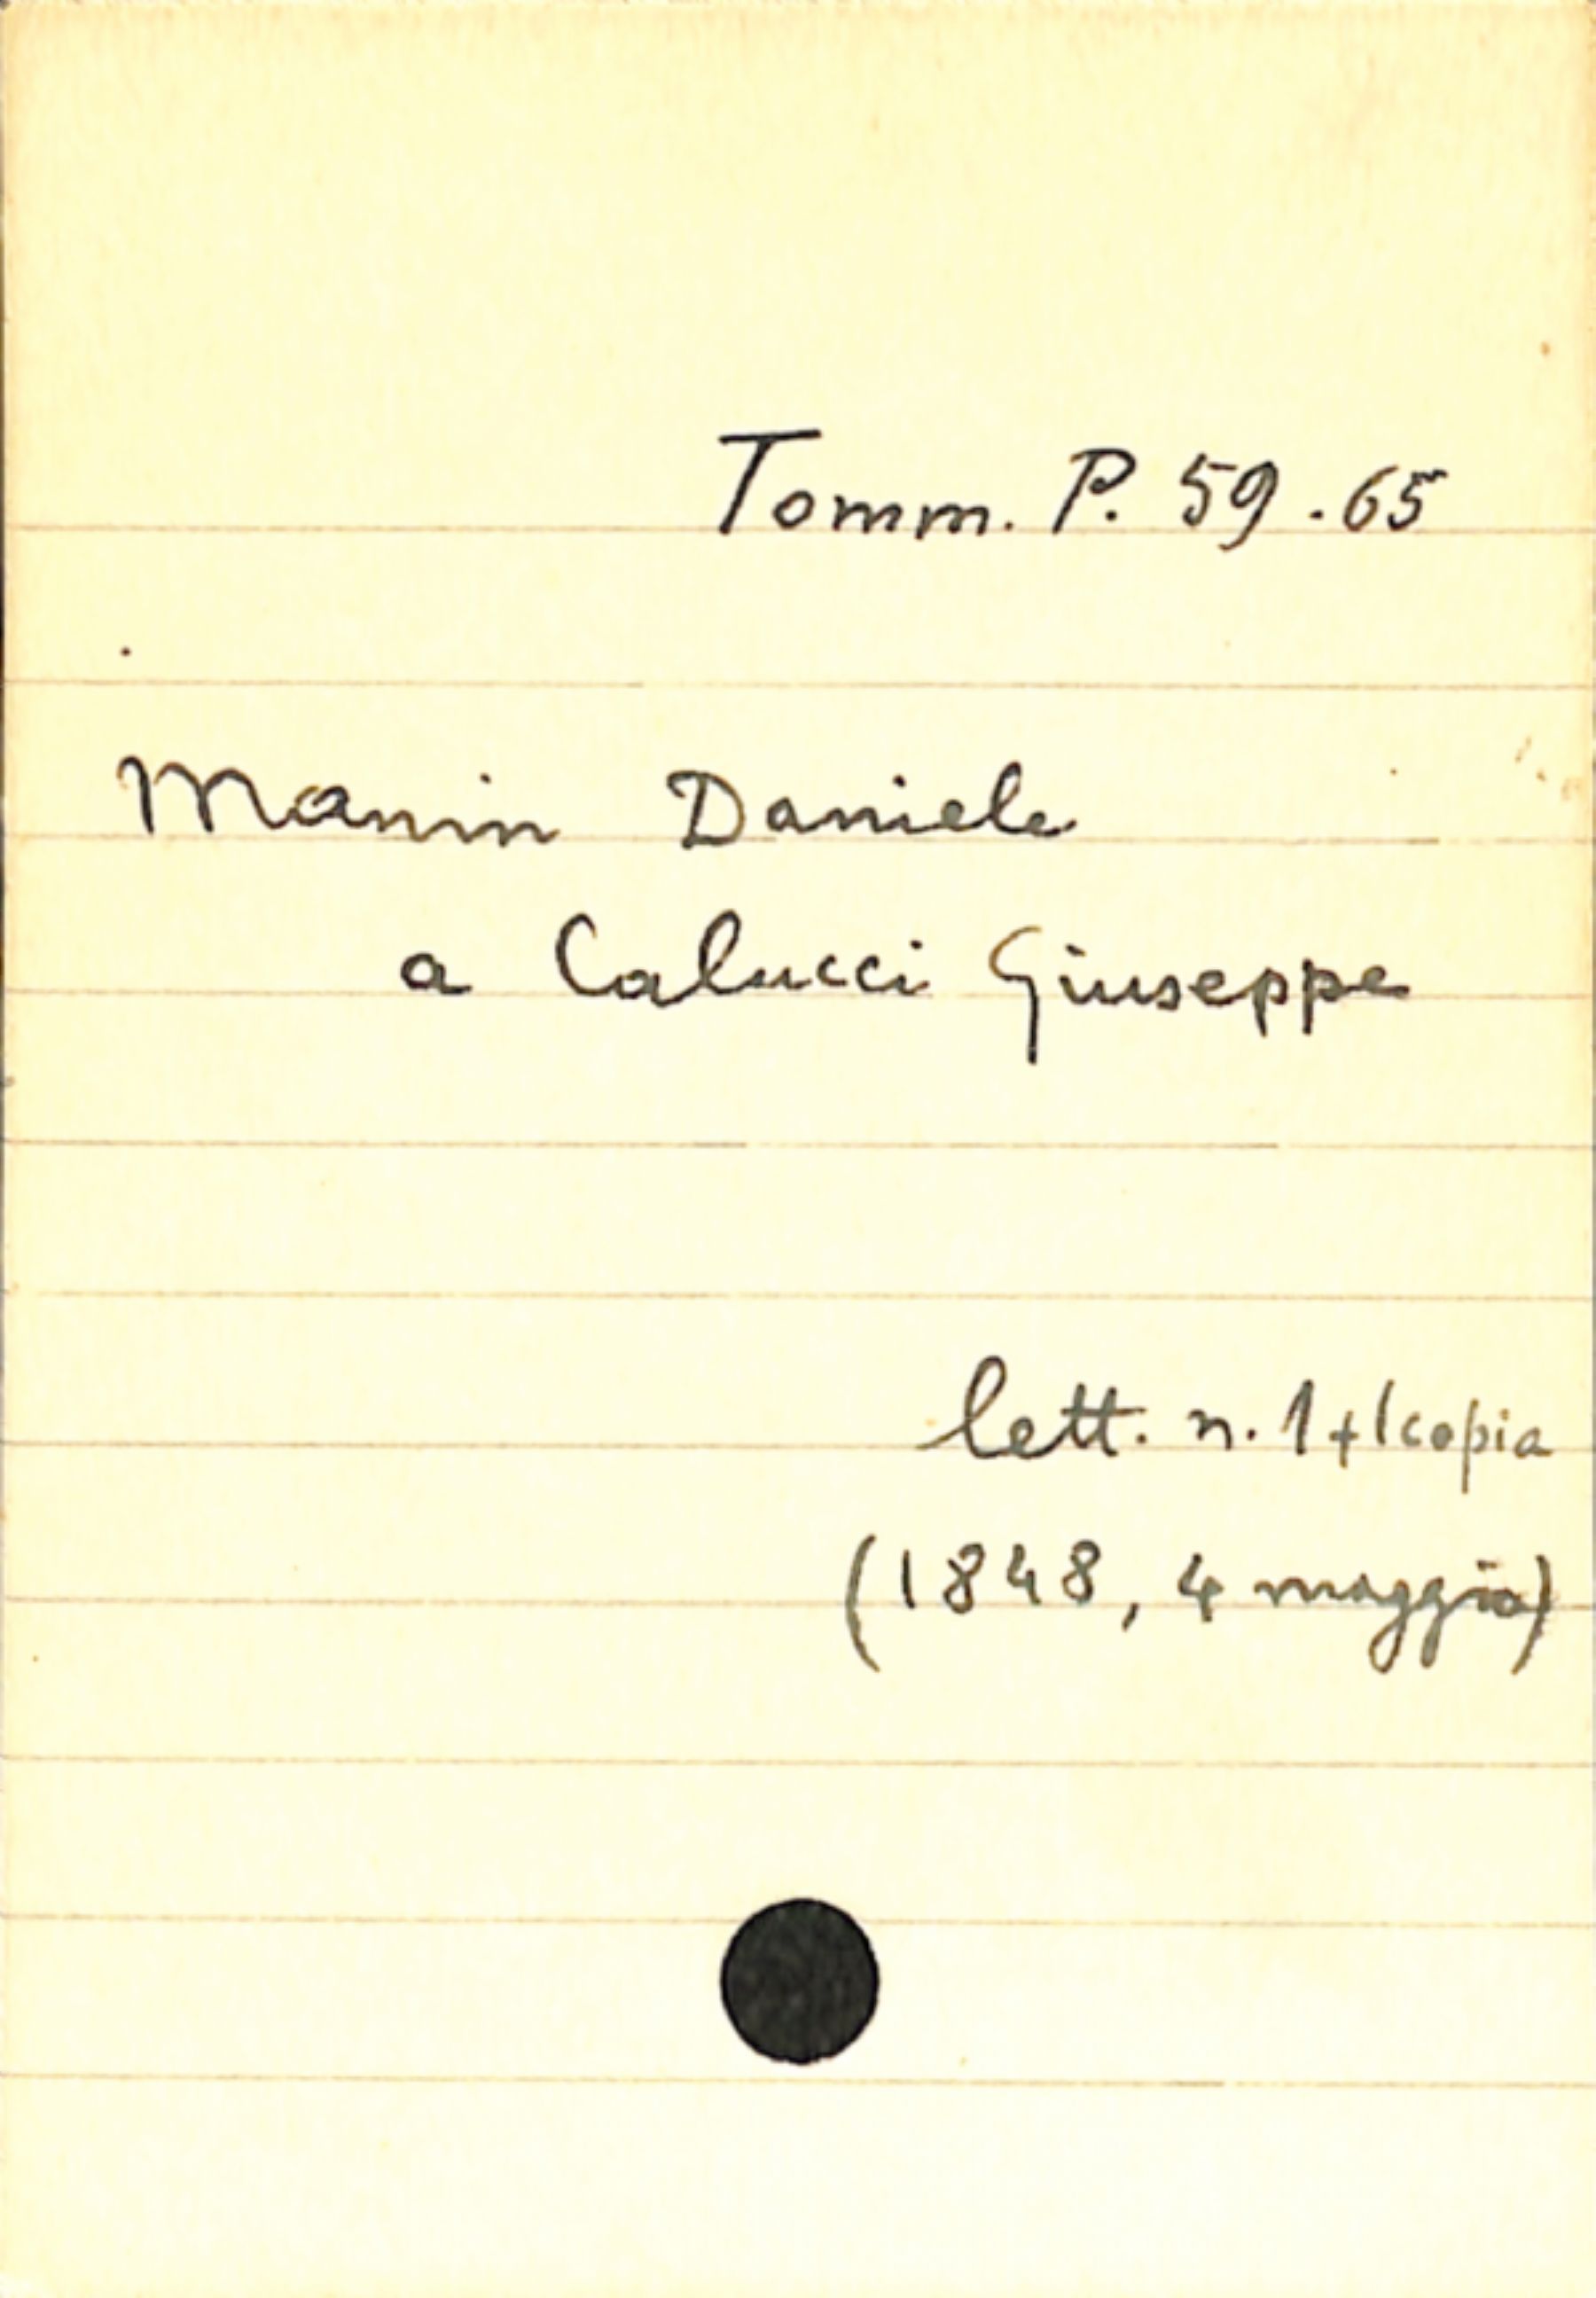 Tomm. P. 59.65
Manin Daniele
a Calucci Giuseppe
lett. n. 1 + 1 copia
(1848, 4 maggio)